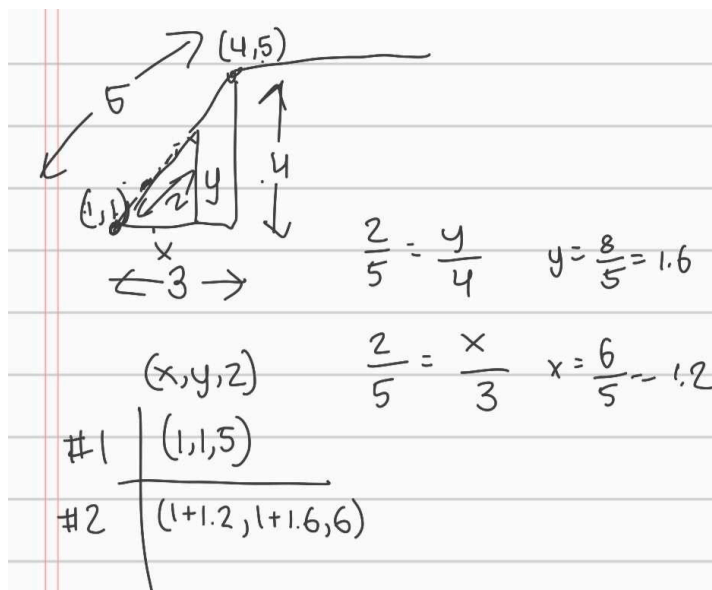 (4,5)
5
4
(1,1)
2
y
x
3
2/5 = y/4 y = 8/5 = 1.6
2/5 = x/3 x = 6/5 = 1.2
(x,y,z)
#1 (1,1,5)
#2 (1+1.2, 1+1.6, 6)